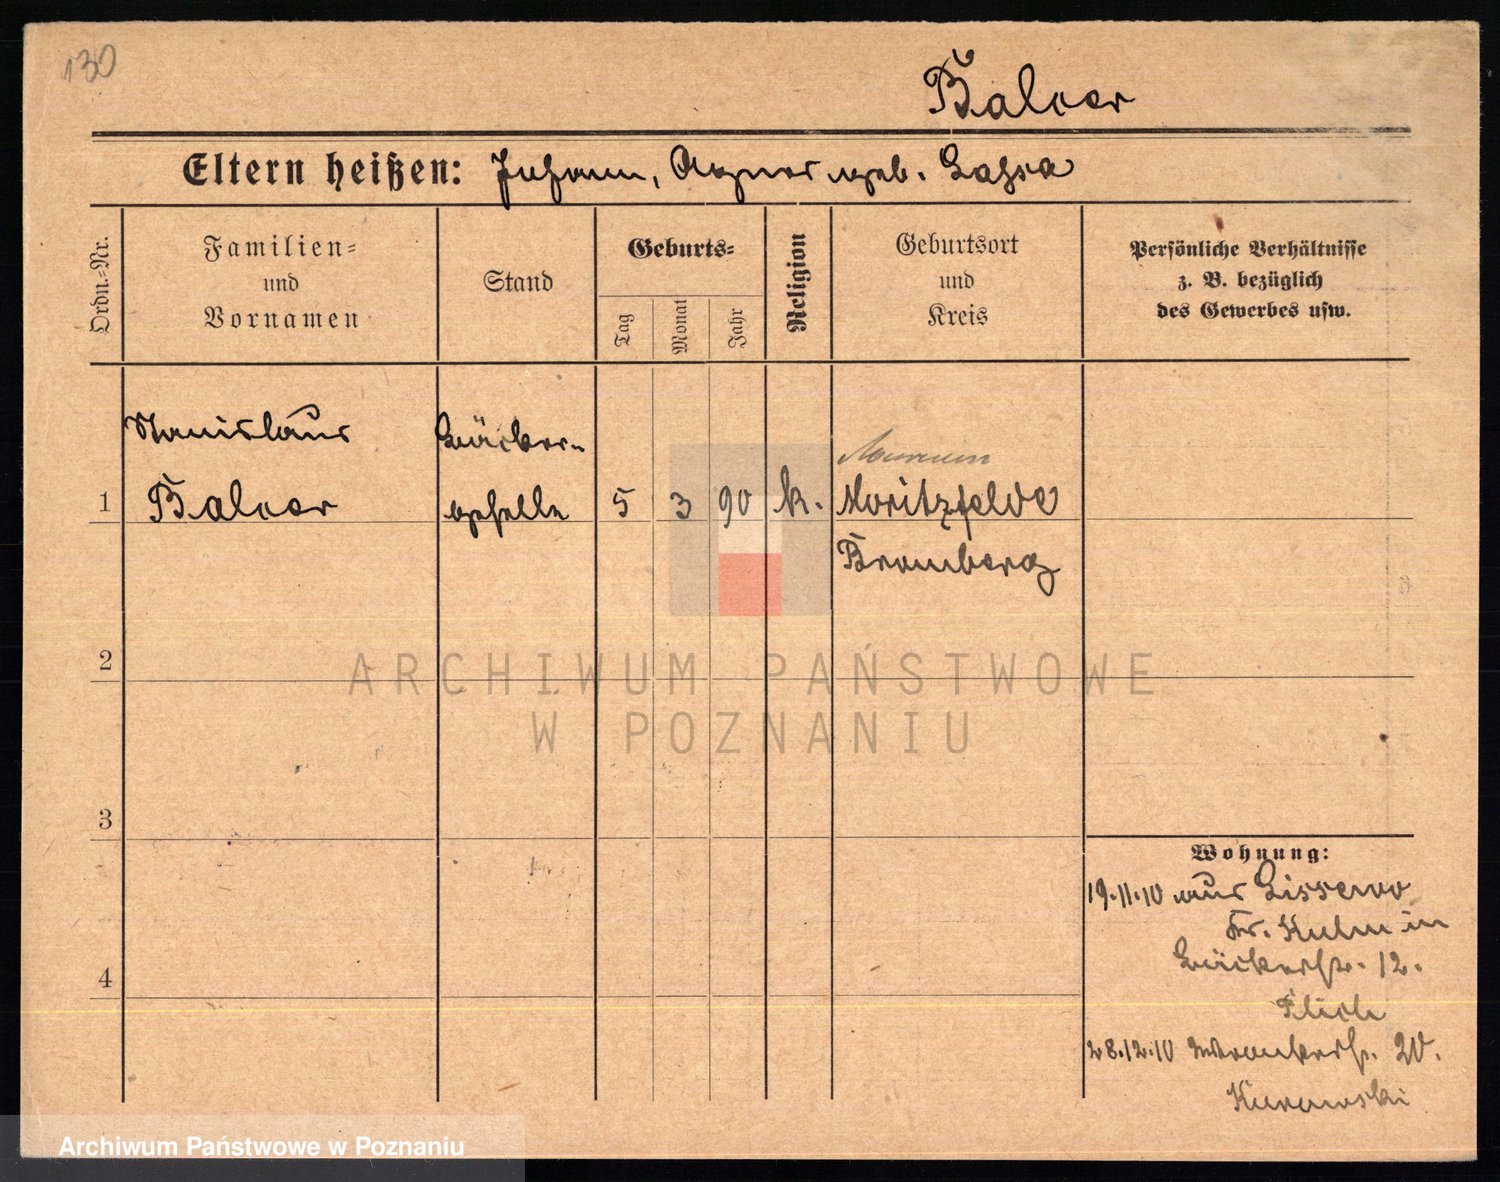 130
Balcer
Eltern heißen: Johann, Agnes geb. Gahsa
Ordn.=Nr.
Familien=
und
Vornamen
Stand
Geburts=
Tag
Monat
Jahr
Religion
Geburtsort
und
Kreis
Persönliche Verhältnisse
z. B. bezüglich
des Gewerbes usw.
Stanislaus
Bäcker-
1 Balcer
geselle
5 3 90 k.
Moritzfelde
Bromberg
2
3
4
Wohnung:
19.11.10 aus Lissewo
Kr. Kulm in
Bäckerstr. 12.
28.12.10 Wronkerstr. 20.
Kurowski
ARCHIWUM PAŃSTWOWE
W POZNANIU
Archiwum Państwowe w Poznaniu